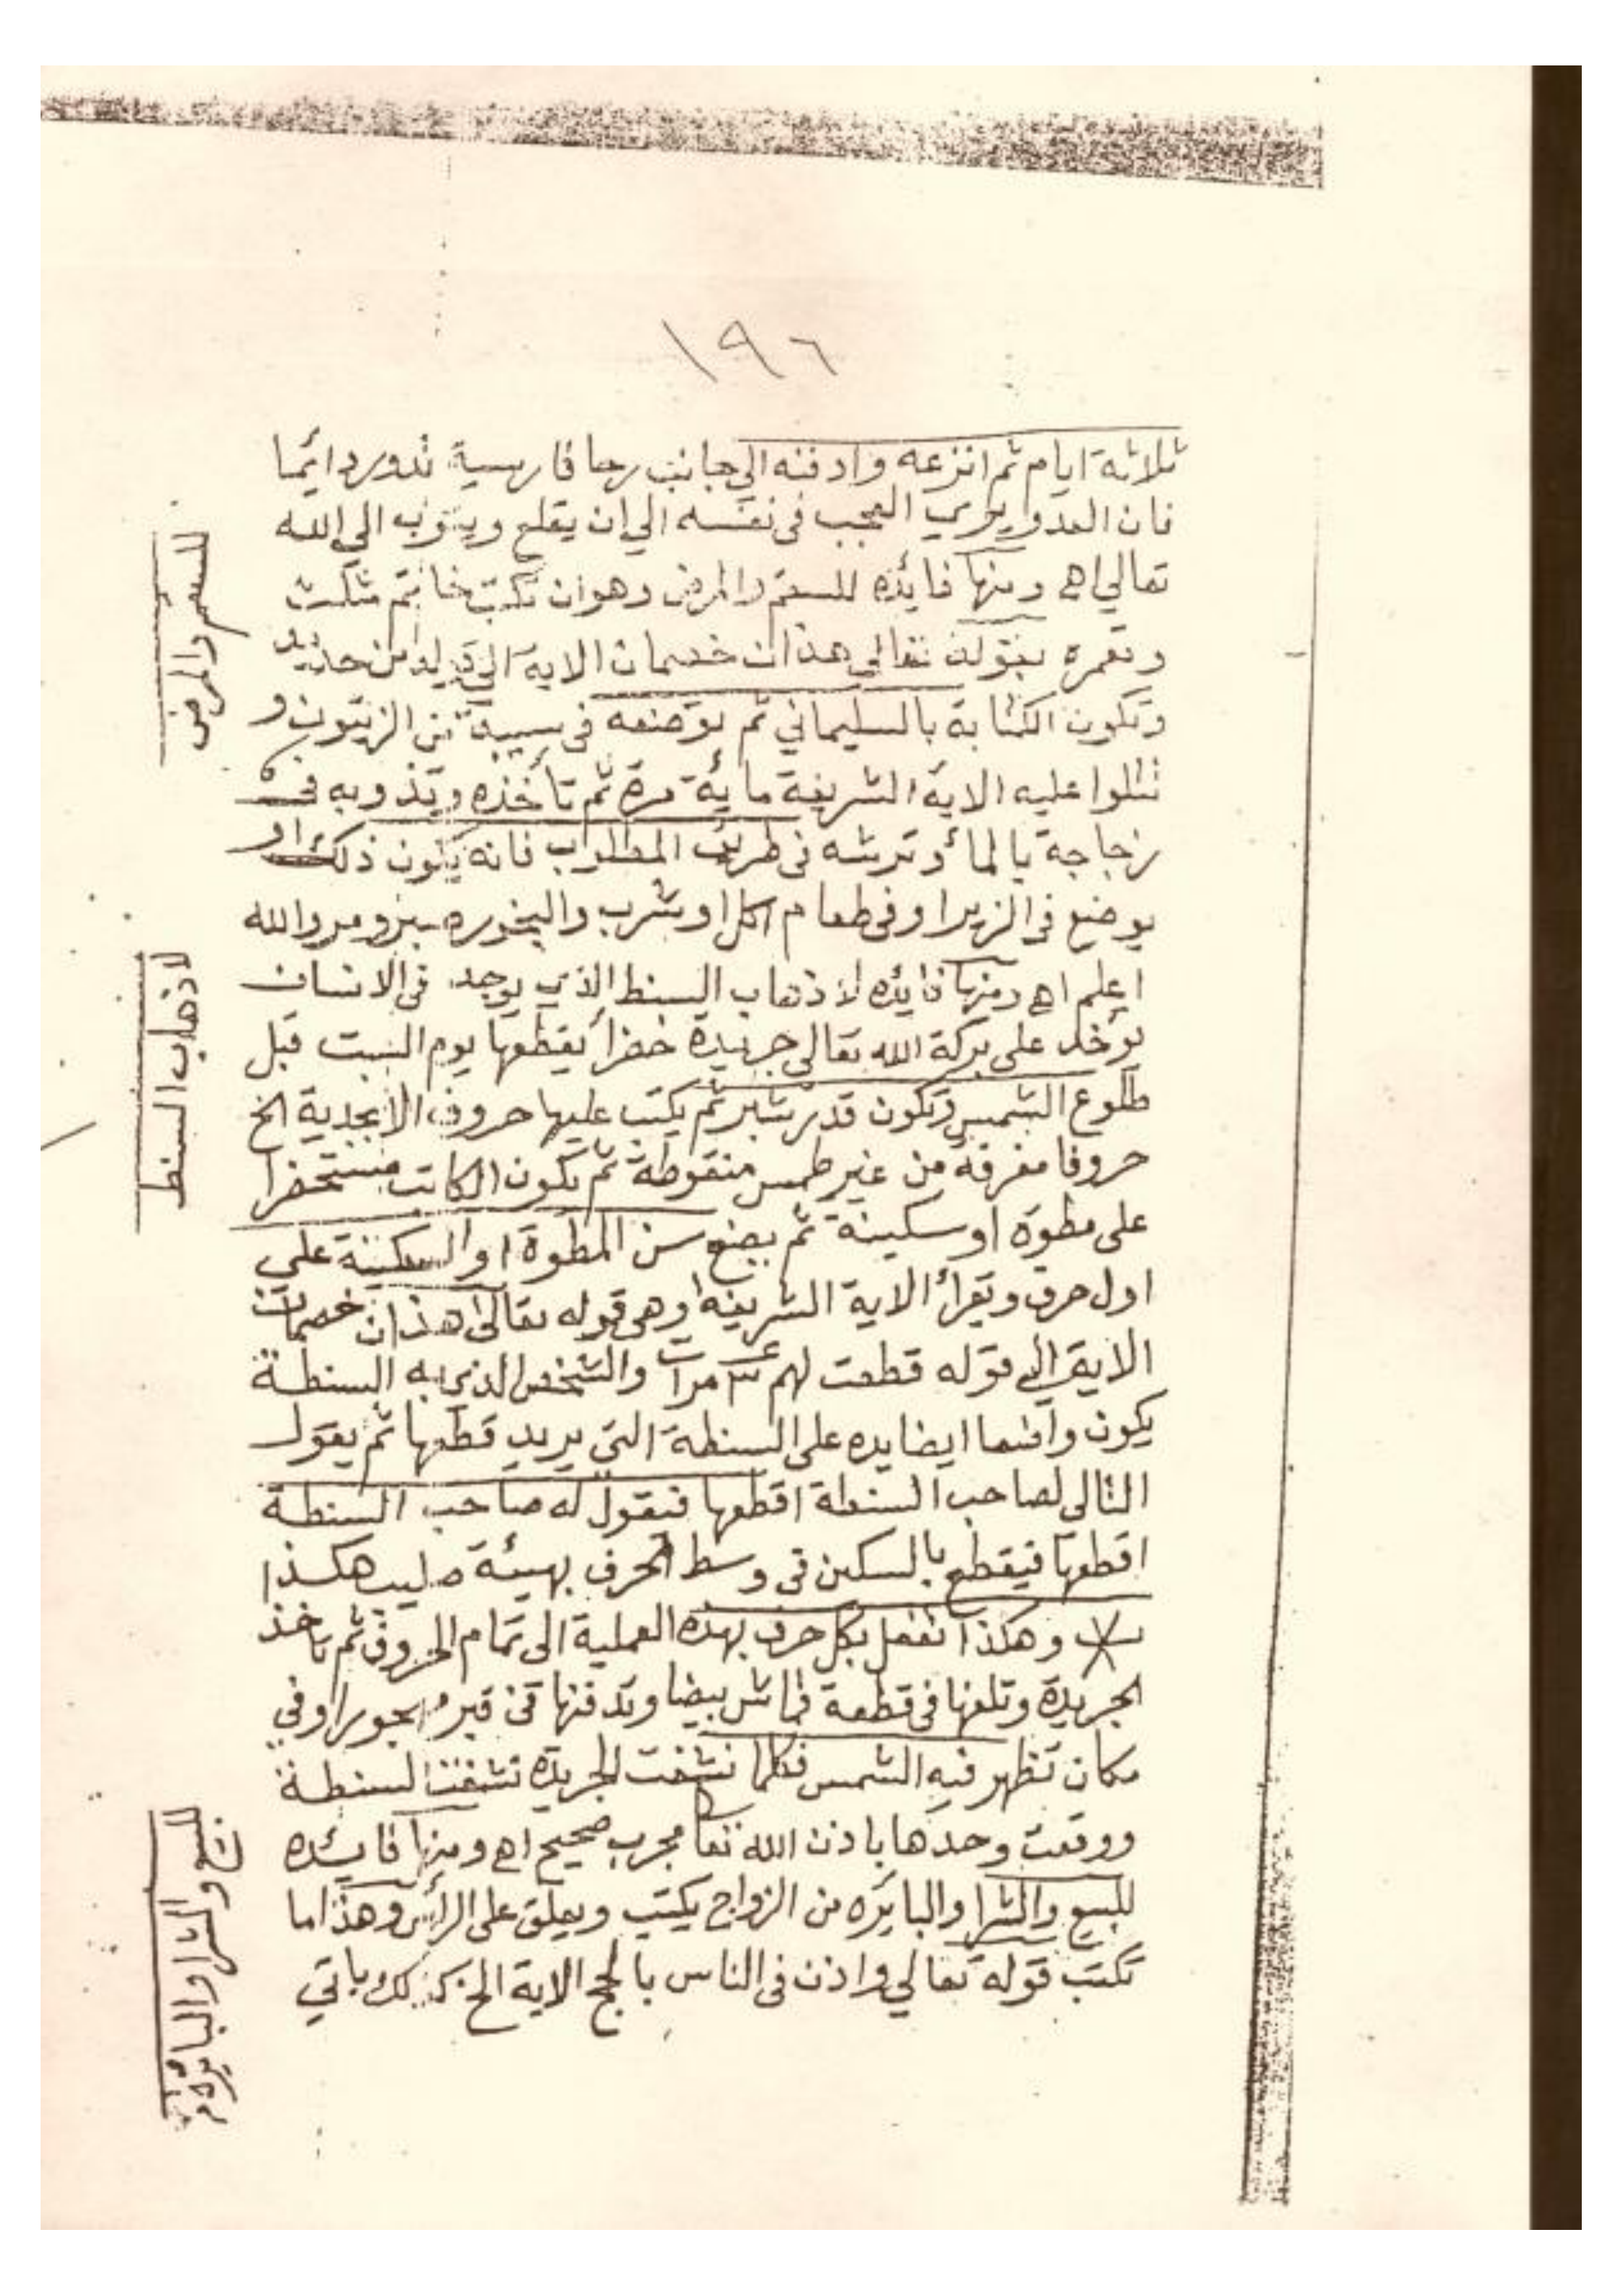 ١٩٦
ثلاثة ايام ثم انزعه وادفنه الي جانب رحا فارسية تدور دائما
فان العدو يري العجب فى نفسه الي ان يقلع ويتوب الي الله
تعالي اهـ ومنها فايده للسقم والمرض وهو ان تكتب خاتم مثلث
وتعمره بقوله تعالي هذان خصمان الاية الي حديد
وتكون الكتابة بالسليماني ثم توضعه فى من الزيتون و
تتلوا عليه الاية الشريفة ماية مرة ثم تأخذه وتذوبه فى
زجاجة بالمأ وترشه فى طريق المطلوب فانه يكون ذلك او
يوضع فى الزير او فى طعام اكل او شرب والبخور والله
اعلم اهـ ومنها فايده لاذهاب السنط الذي يوجد فى الانسان
يوخد على بركة الله تعالى جريدة خضرأ يقطعها يوم السبت قبل
طلوع الشمس وتكون قدر شبر ثم يكتب عليها حروف الابجدية الخ
حروفا مفرقة من غير طمس منقوطة ثم تكون الكاتب مستحضرا
على مطوة او سكينة ثم يضع سن المطوة او السكينة علي
اول حرف وتقرأ الاية الشريفة وهى قوله تعالى هذان خصمان
الاية الي قوله قطعت لهم مرات والشخص الذي به السنطة
يكون واضعا ايضا يده على السنطة التي يريد قطعها ثم يقول
التالى لصاحب السنطة اقطعها فيقول له صاحب السنطة
اقطعها فيقطع بالسكين فى وسط الحرف بهيئة صليب هكذا
وهكذا تفعل بكل حرف بهذه العملية الى تمام الحروف ثم تاخذ
الجريدة وتلفها فى قطعة قماش بيضا وتدفنها فى قبر مهجور او في
مكان تظهر فيه الشمس فكلما نشفت الجريدة نشفت السنطة
ووقعت وحدها باذن الله تعا مجرب صحيح اهـ ومنها فايده
للبيع والشرا والبايره من الزواج يكتب ويعلق على الرأس وهذا ما
تكتب قوله تعالي واذن فى الناس بالحج الاية الخ كذلك ياتي
للسقم والمرض
لاذهاب السنط
للبيع والشرا والبائرة